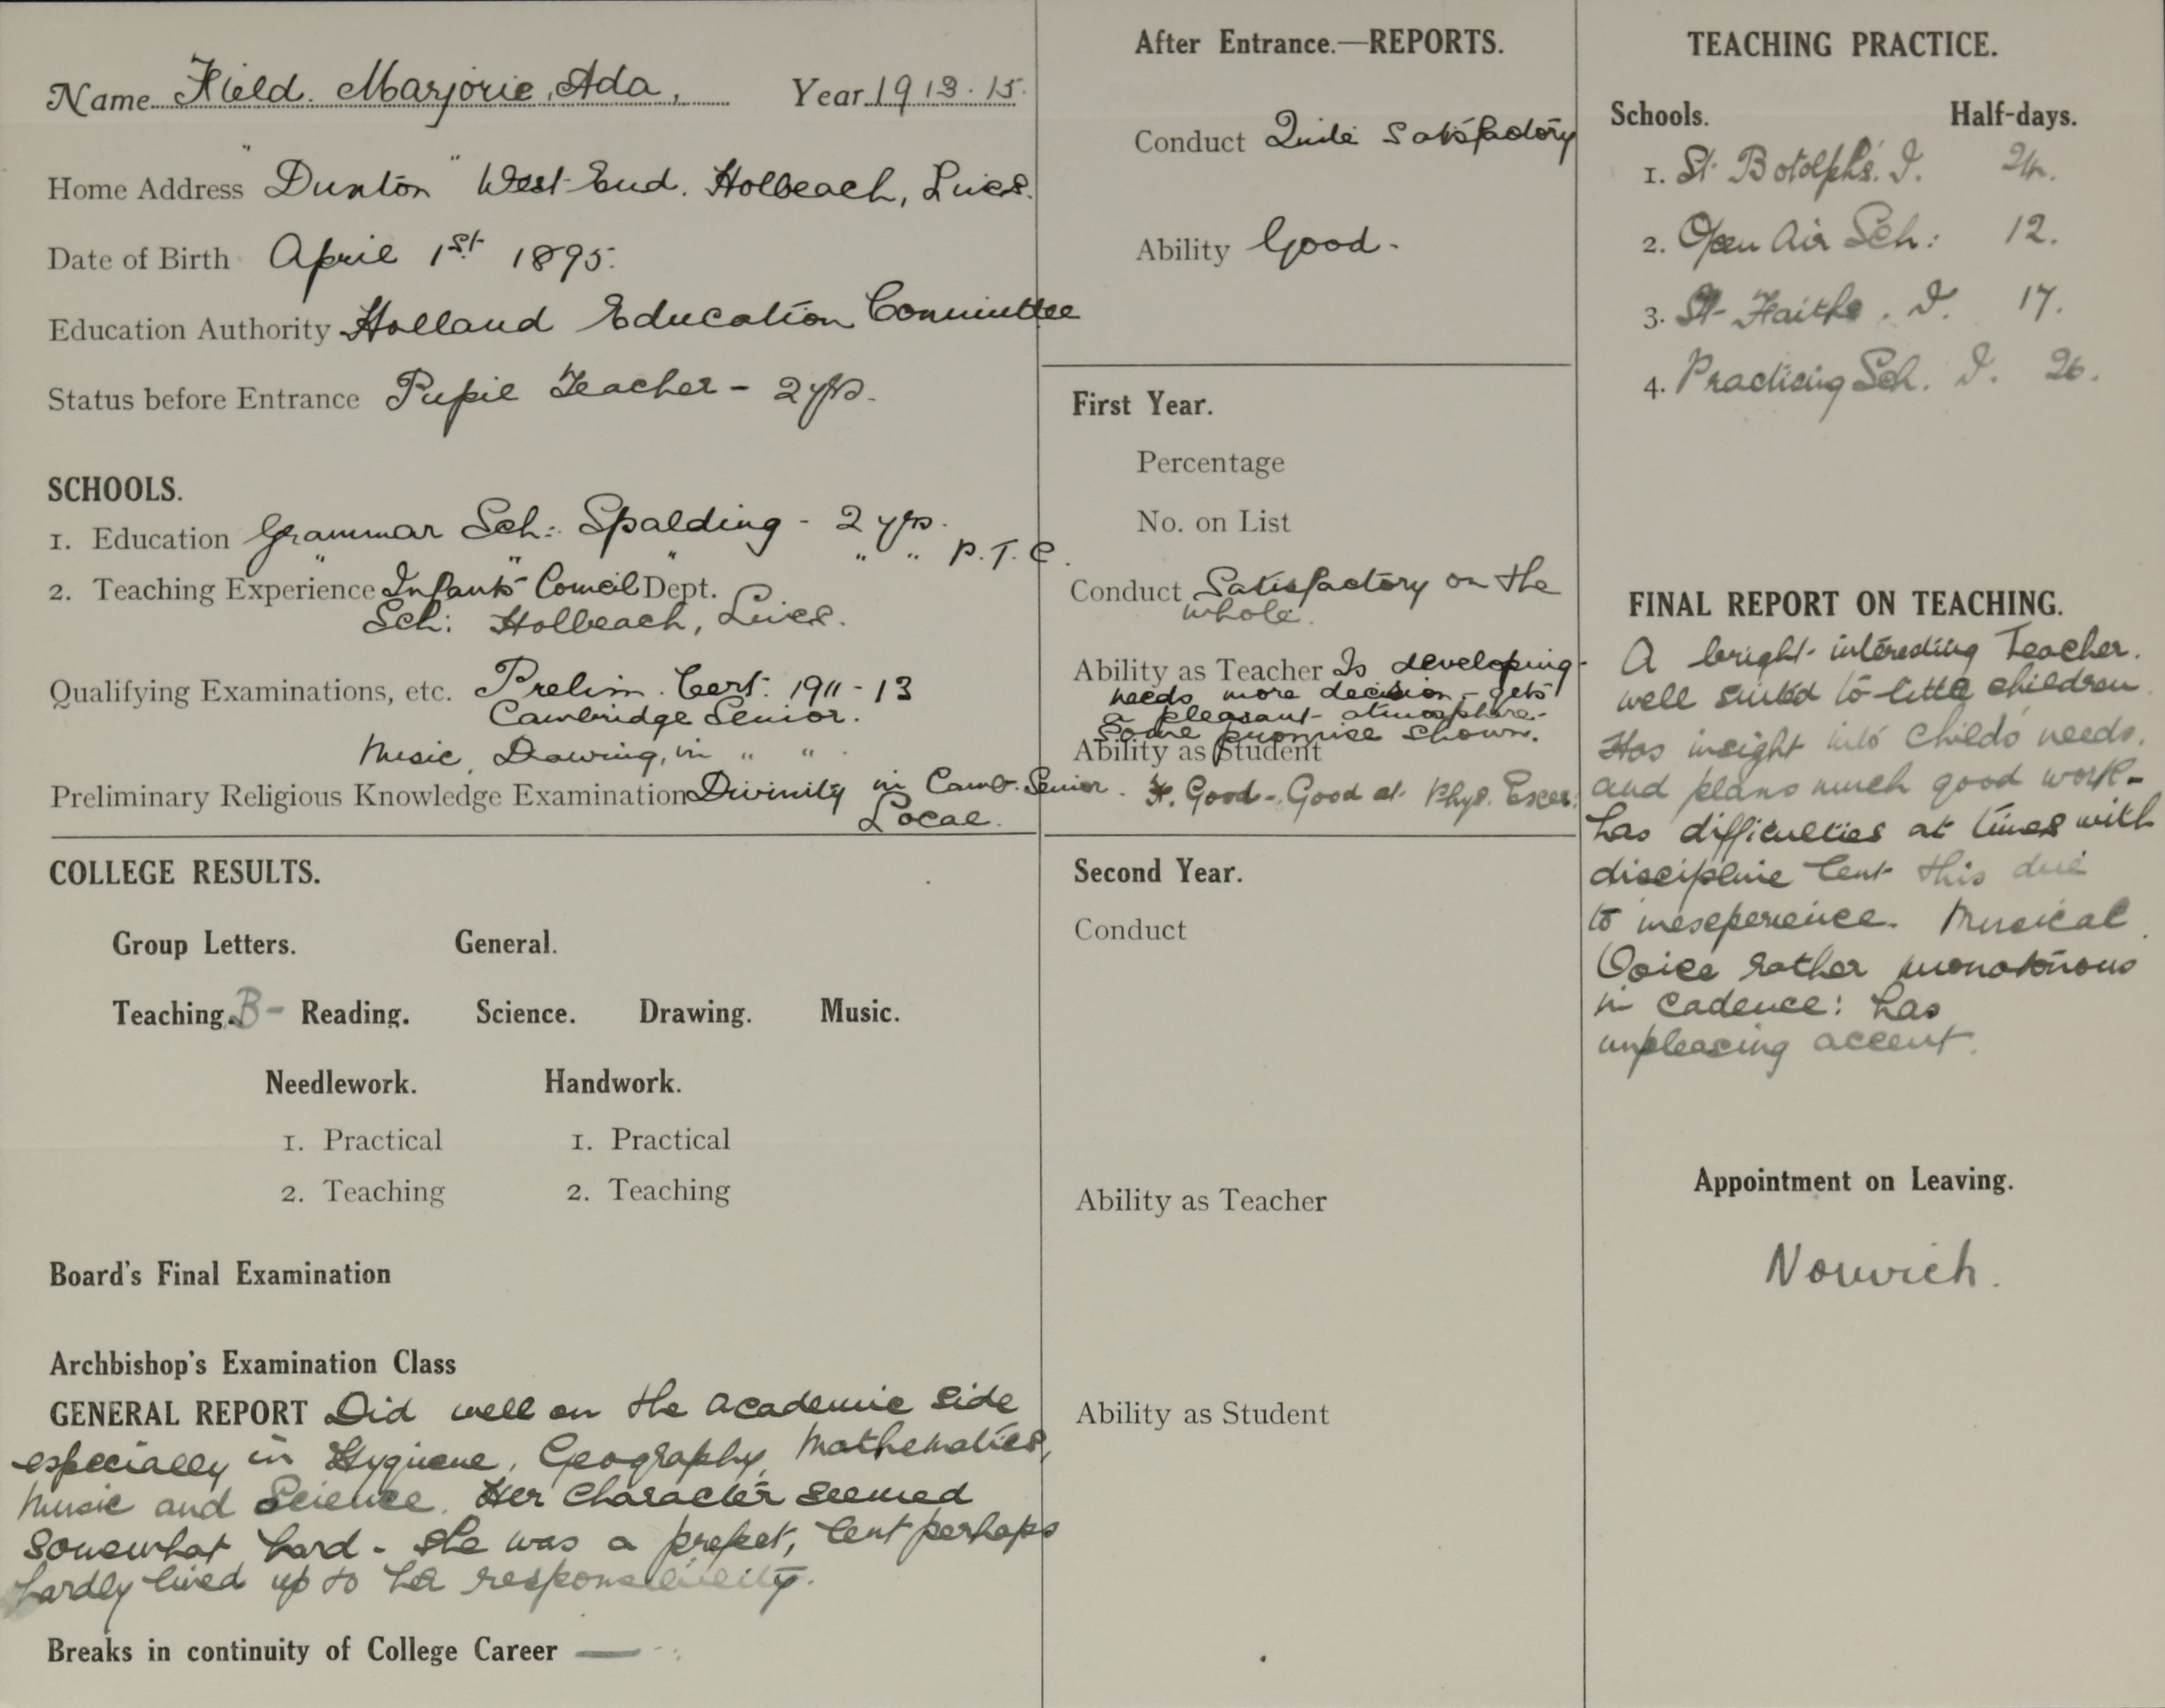 Name Field. Marjorie, Ada, Year 1913-15.
Home Address "Dunton" West End. Holbeach, Lincs.
Date of Birth April 1st 1895.
Education Authority Holland Education Committee
Status before Entrance Pupil Teacher - 2 yrs.
SCHOOLS.
1. Education Grammar Sch: Spalding - 2 yrs.
" " " " " P.T.C.
2. Teaching Experience Infants Council Dept.
Sch: Holbeach, Lincs.
Qualifying Examinations, etc. Prelim. Cert. 1911-13
Cambridge Senior.
Music, Drawing, in " "
Preliminary Religious Knowledge Examination Divinity in Camb. Senior.
Local.
COLLEGE RESULTS.
Group Letters. General.
Teaching. B- Reading. Science. Drawing. Music.
Needlework. Handwork.
1. Practical 1. Practical
2. Teaching 2. Teaching
Board's Final Examination
Archbishop's Examination Class
GENERAL REPORT Did well on the academic side
especially in Hygiene, Geography, Mathematics,
Music and Science. Her character seemed
somewhat hard - she was a prefect, but perhaps
hardly lived up to her responsibility.
Breaks in continuity of College Career —
After Entrance.—REPORTS.
Conduct Quite satisfactory
Ability Good.
First Year.
Percentage
No. on List
Conduct Satisfactory on the
whole.
Ability as Teacher Is developing -
needs more decision - gets
a pleasant atmosphere -
some promise shown.
Ability as Student
F. Good - Good at Phys. Exer.
Second Year.
Conduct
Ability as Teacher
Ability as Student
TEACHING PRACTICE.
Schools. Half-days.
1. St Botolph's. I.
2. Open Air Sch: 12.
3. St Faiths. I. 17.
4. Practising Sch. I. 26.
FINAL REPORT ON TEACHING.
A bright interesting Teacher.
well suited to little children
Has insight into child's needs.
and plans much good work -
has difficulties at times with
discipline but this due
to inexperience. Musical.
Voice rather monotonous
in cadence: has
unpleasing accent.
Appointment on Leaving.
Norwich.